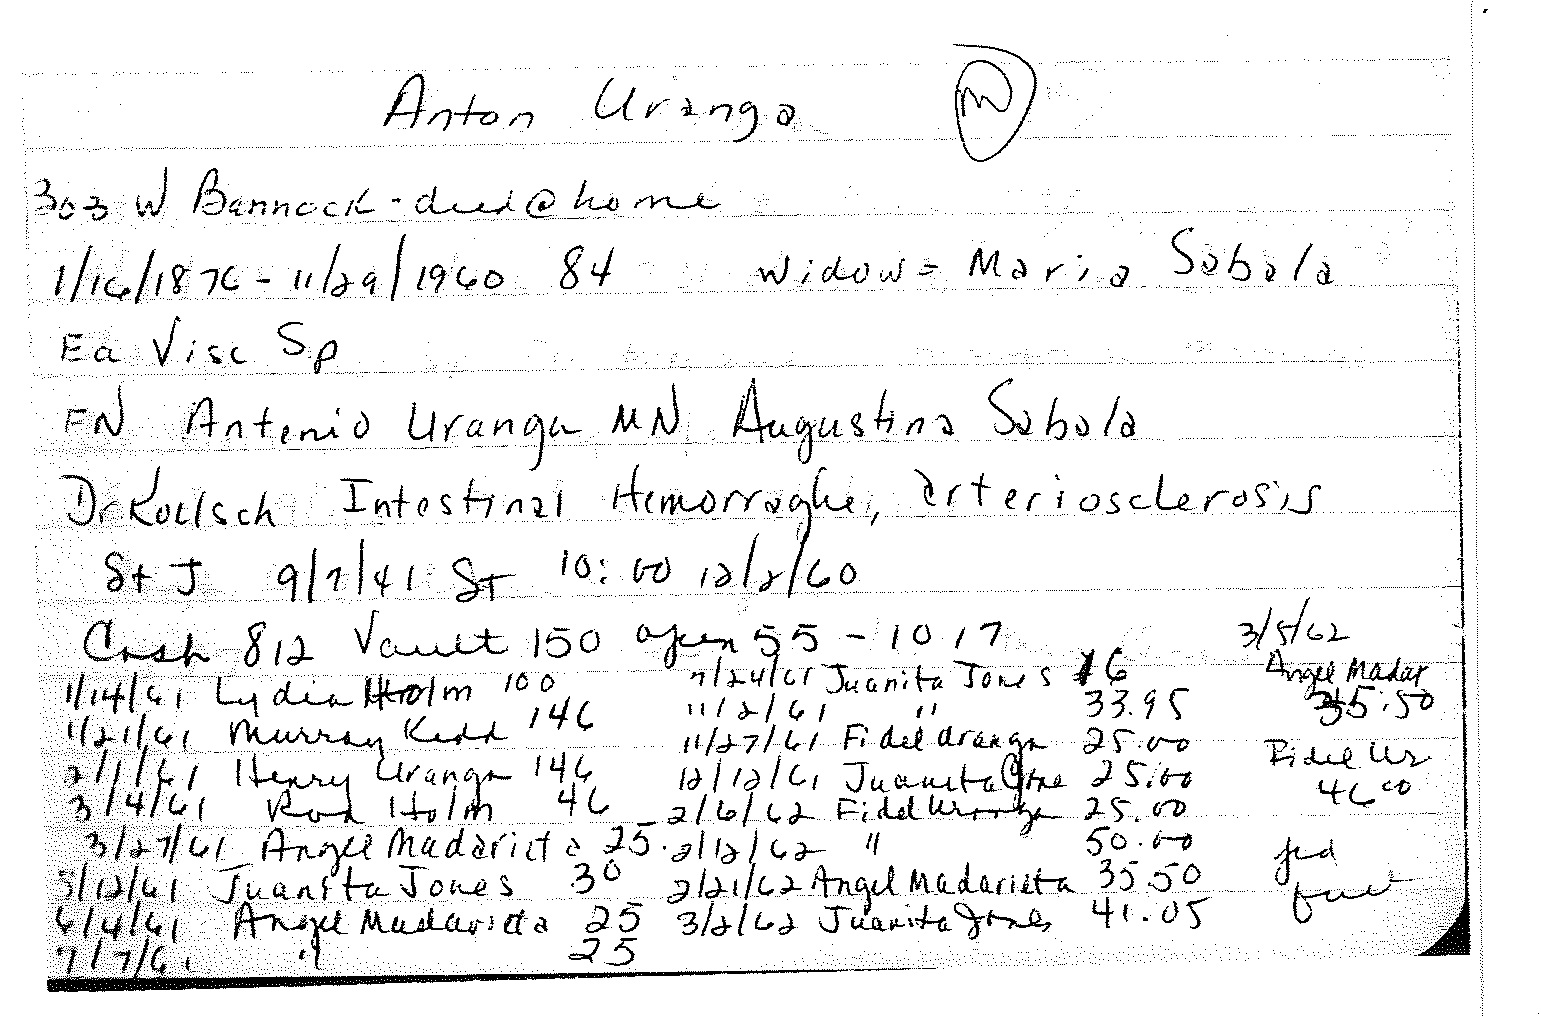 Anton Uranga M
303 W Bannock - died @ home
1/16/1876 - 11/29/1960 84 widow = Maria Sabala
Ea Visc Sp
FN Antonio Uranga MN Augustina Sabala
Dr Koelsch Intestinal Hemorraghe, arteriosclerosis
St J 9/7/41 St 10:00 12/2/60
Cash 812 Vault 150 open 55 - 1017
1/14/61 Lydia Holm 100
1/21/61 Murray Kidd 146
2/1/61 Henry Uranga 146
3/4/61 Rod Holm 46
3/27/61 Angel Madarieta 25.
5/12/61 Juanita Jones 30
6/4/61 Angel Madarieta 25
7/7/61 " 25
7/24/61 Juanita Jones 16
11/2/61 " 33.95
11/27/61 Fidel Uranga 25.00
12/12/61 Juanita Jone 25.00
2/6/62 Fidel Uranga 25.00
2/12/62 " 50.00
2/21/62 Angel Madarieta 35.50
3/2/62 Juanita Jones 41.05
3/5/62
Angel Madar
35.50
Fidel Ur
46.00
pd
full